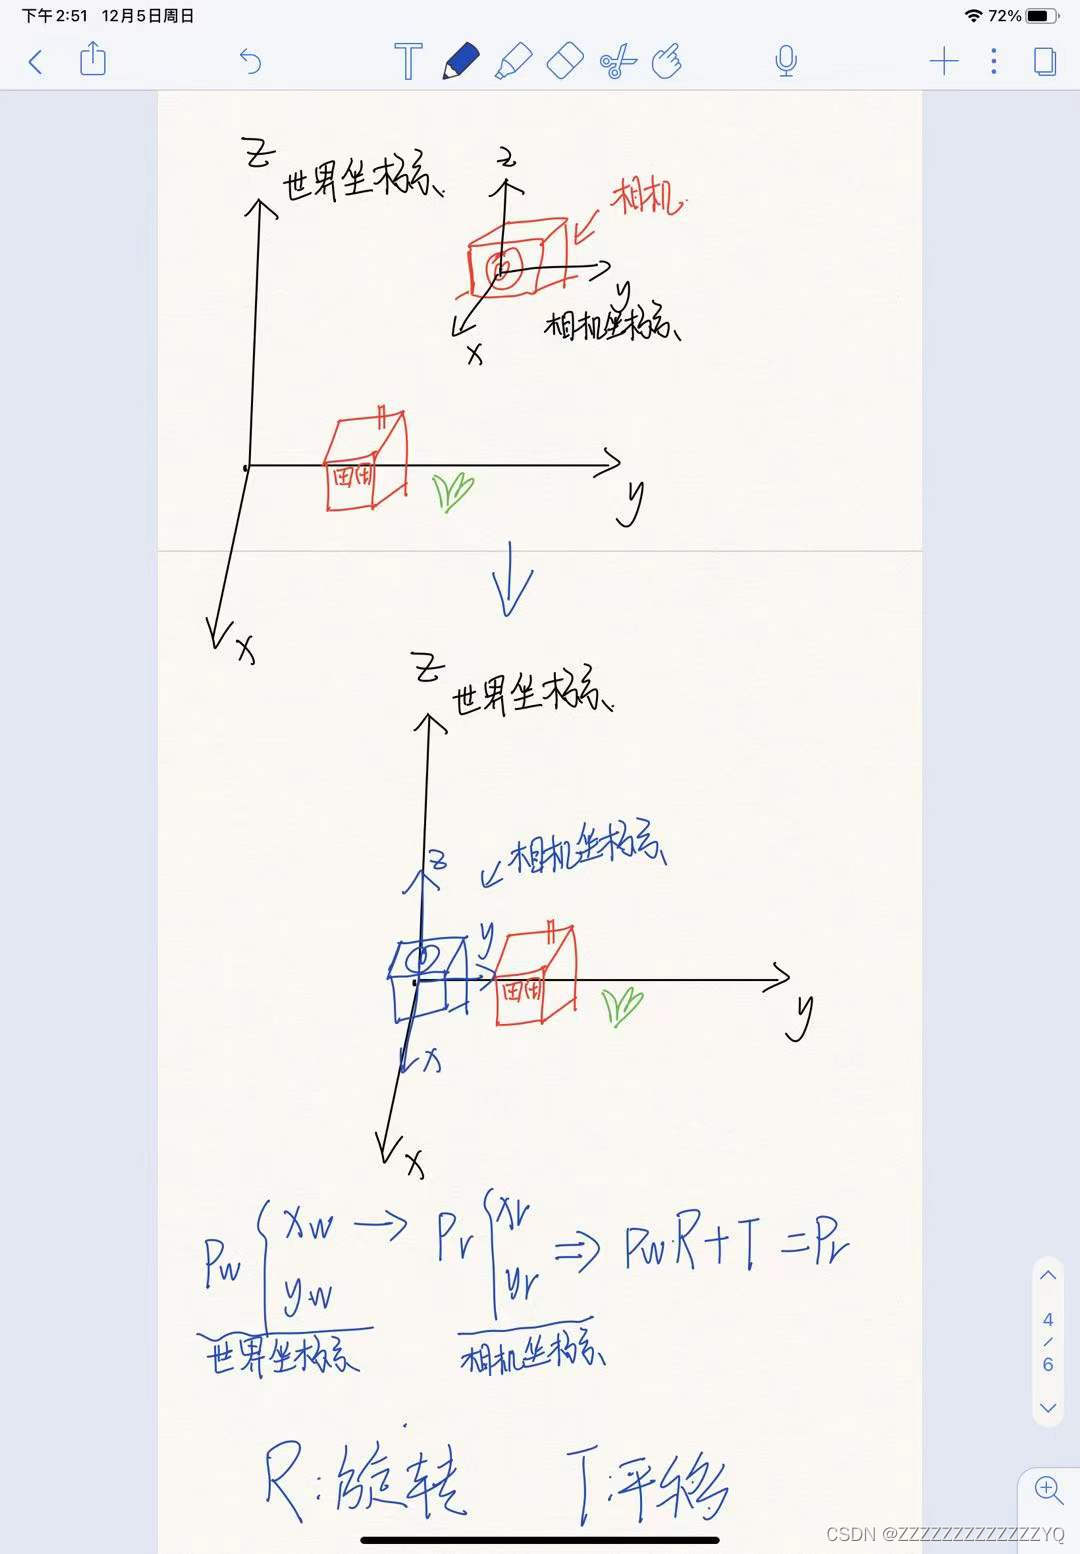 下午2:51 12月5日周日
72%
T
Z
世界坐标系
z
相机
y
相机坐标系
x
y
x
Z
世界坐标系
z
相机坐标系
y
y
x
x
Pw { xw → Pr { xr ⇒ Pw·R+T=Pr
yw yr
世界坐标系 相机坐标系
R:旋转 T:平移
4
/
6
CSDN @ZZZZZZZZZZZZZYQ